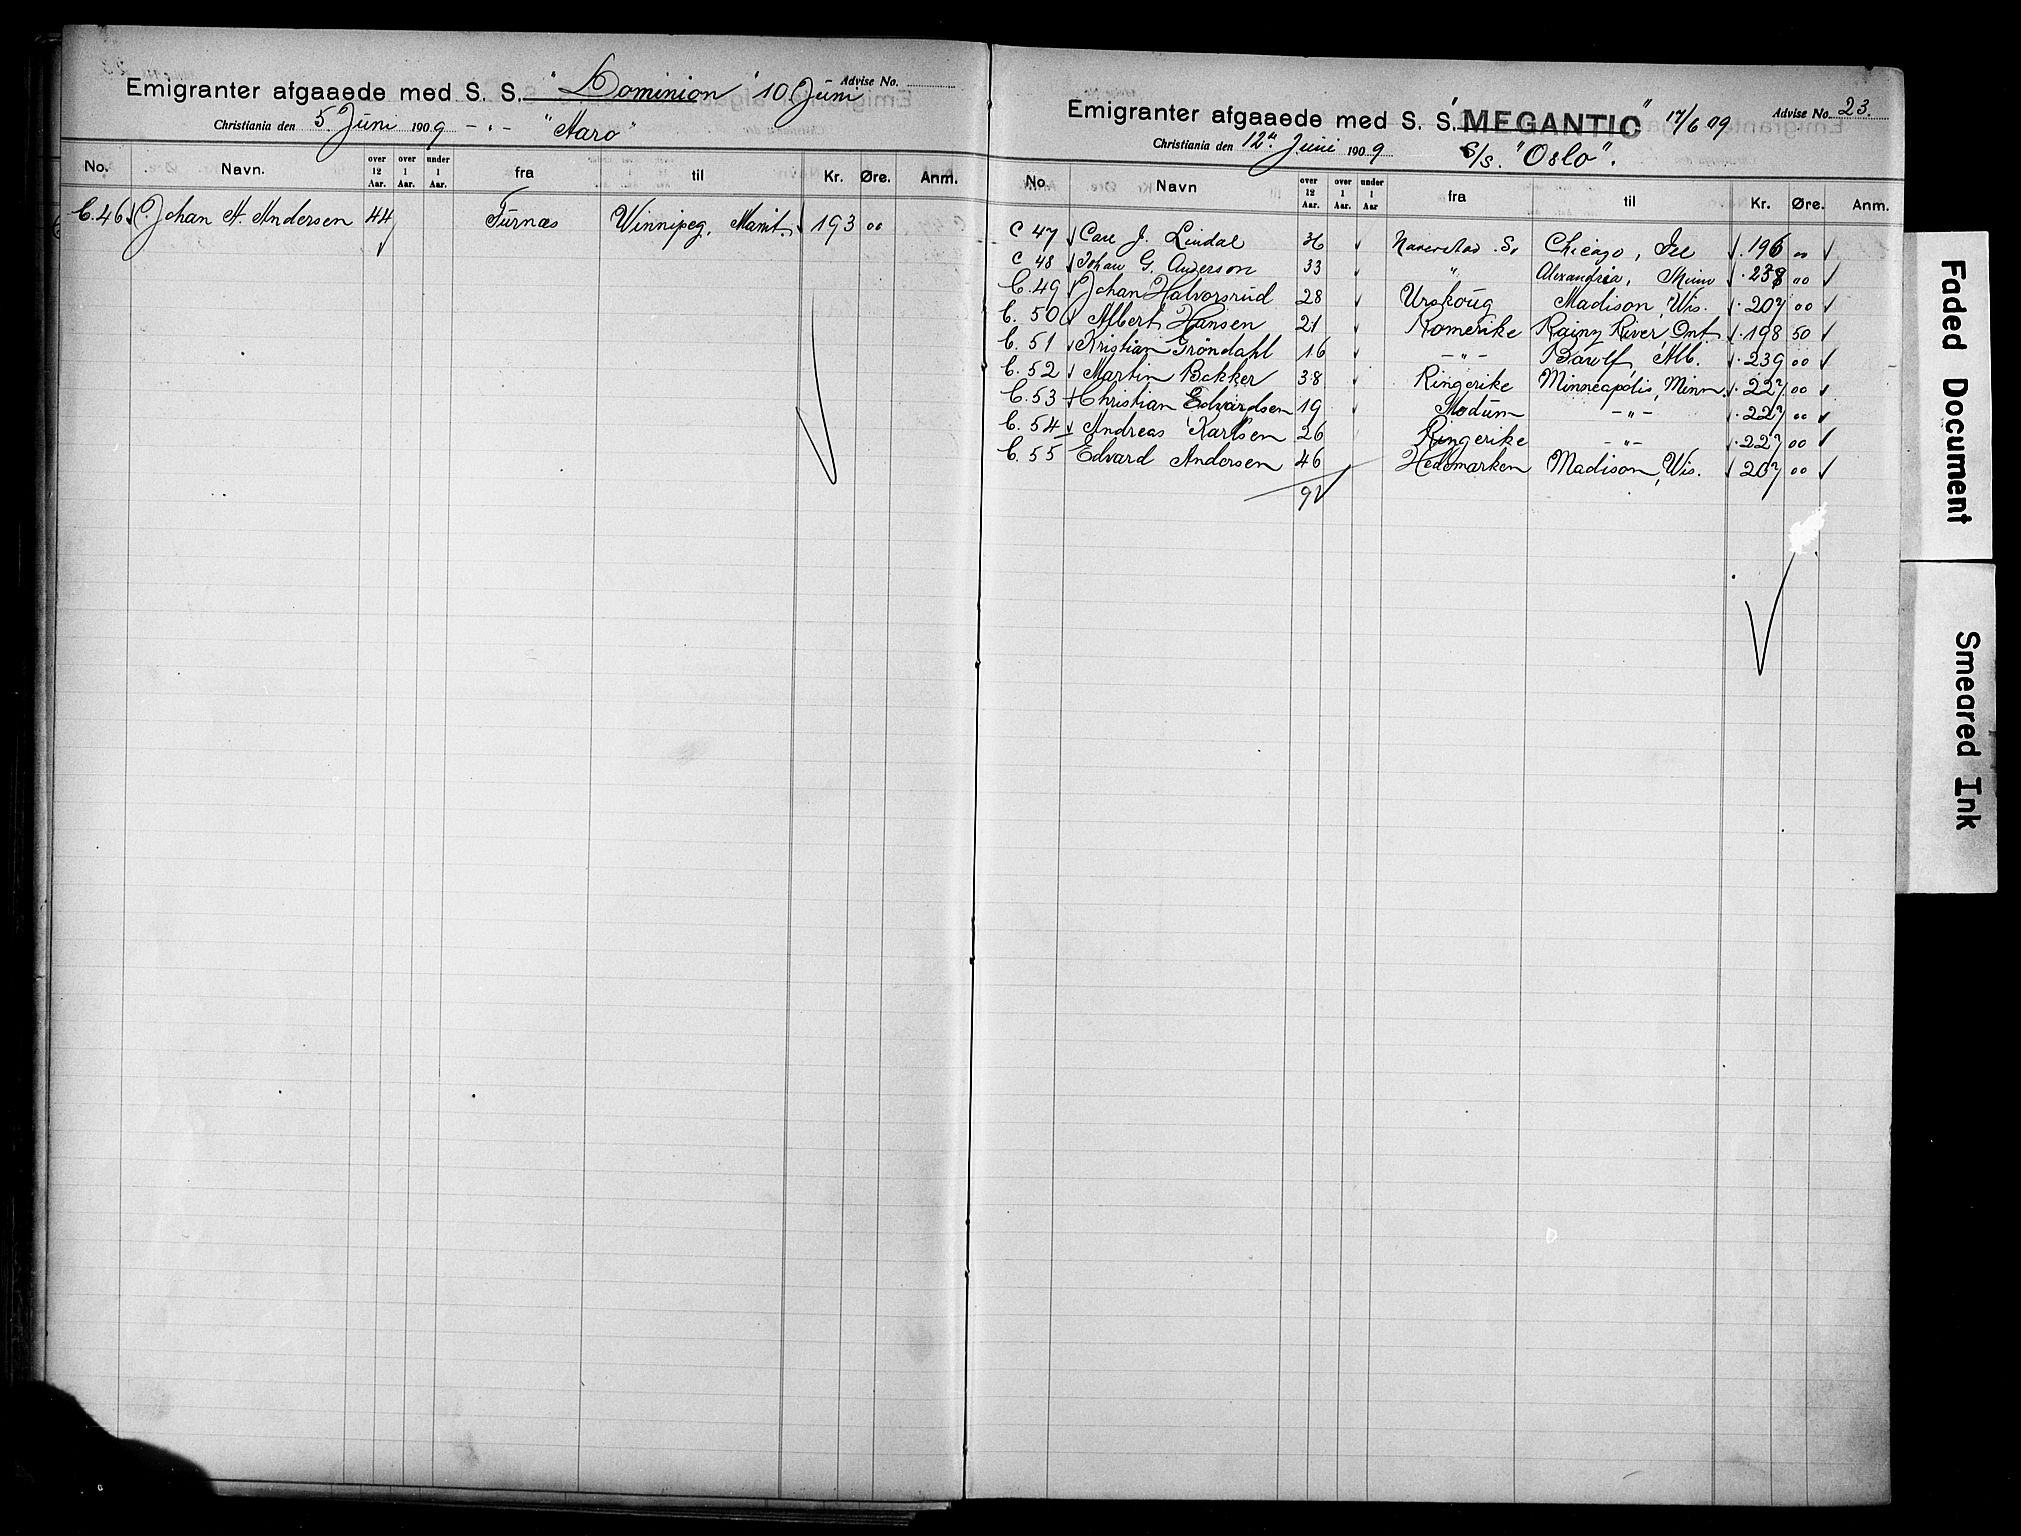 Emigranter afgaaede med S. S. "Dominion" 10. Juni Advise No.
Christiania den 5. Juni 1909 - " - "Aaro"
No. Navn. over 12 Aar. over 1 Aar. under 1 Aar. fra til Kr. Øre. Anm.
C. 46 Johan A. Andersen 44 Furnæs Winnipeg, Manit. 193 00
Emigranter afgaaede med S. S. "MEGANTIC" 17/6 09 Advise No. 23.
Christiania den 12te Juni 1909 S/S. "Oslo".
No. Navn over 12 Aar. over 1 Aar. under 1 Aar fra til Kr. Øre. Anm.
C 47 Carl J. Lindal 36 Naverstad. Sv Chicago, Ill 196 00
C 48 Johan G. Anderson 33 " Alexandria, Minn 238 00
C. 49 Johan Halvorsrud 28 Urskoug Madison, Wis. 207 00
C. 50 Albert Hansen 21 Romerike Rainy River, Ont. 198 50
C. 51 Kristian Gröndahl 16 - " - Bawlf, Alb. 239 00
C. 52 Martin Bakker 38 Ringerike Minneapolis, Minn. 227 00
C. 53 Christian Edvardsen 19 Modum - " - 227 00
C. 54 Andreas Karlsen 26 Ringerike - " - 227 00
C. 55 Edvard Andersen 46 Hedemarken Madison, Wis. 207 00
9
Faded Document
Smeared Ink